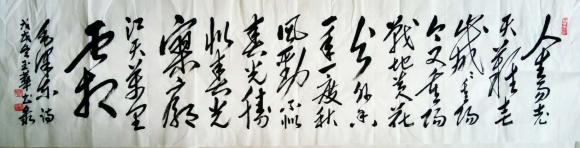 人生易老
天难老
岁岁重阳
今又重阳
战地黄花
分外香
一年一度秋
风劲不似
春光胜
似春光
寥廓
江天万里
霜
毛泽东诗
戊戌